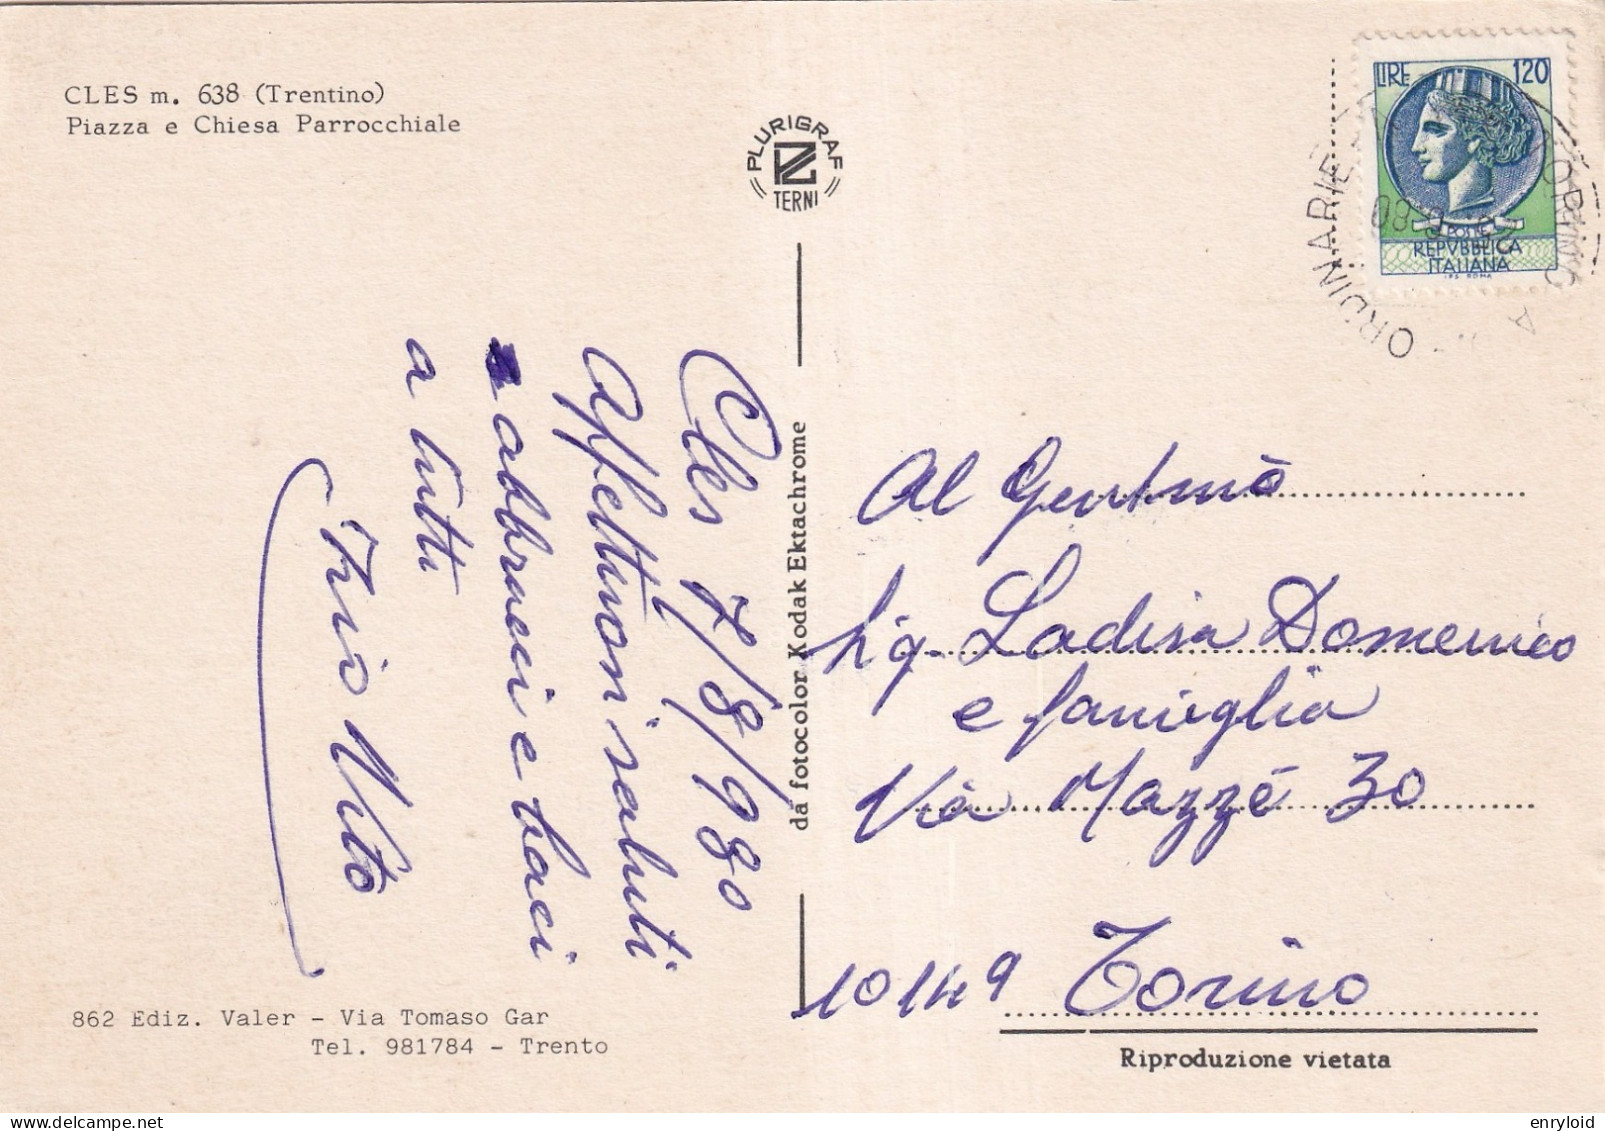 CLES m. 638 (Trentino)
Piazza e Chiesa Parrocchiale
PLURIGRAF
TERNI
LIRE 120
POSTE
REPVBBLICA
ITALIANA
I.P.S. ROMA
ORDINARIE
TORINO
Cles 7/8/980
Affettuosi saluti
abbracci e baci
a tutti
Vito
da fotocolor Kodak Ektachrome
Al Gentmo
Sig. Ladisa Domenico
e famiglia
Via Mazzé 30
10149 Torino
862 Ediz. Valer - Via Tomaso Gar
Tel. 981784 - Trento
Riproduzione vietata
enryloid